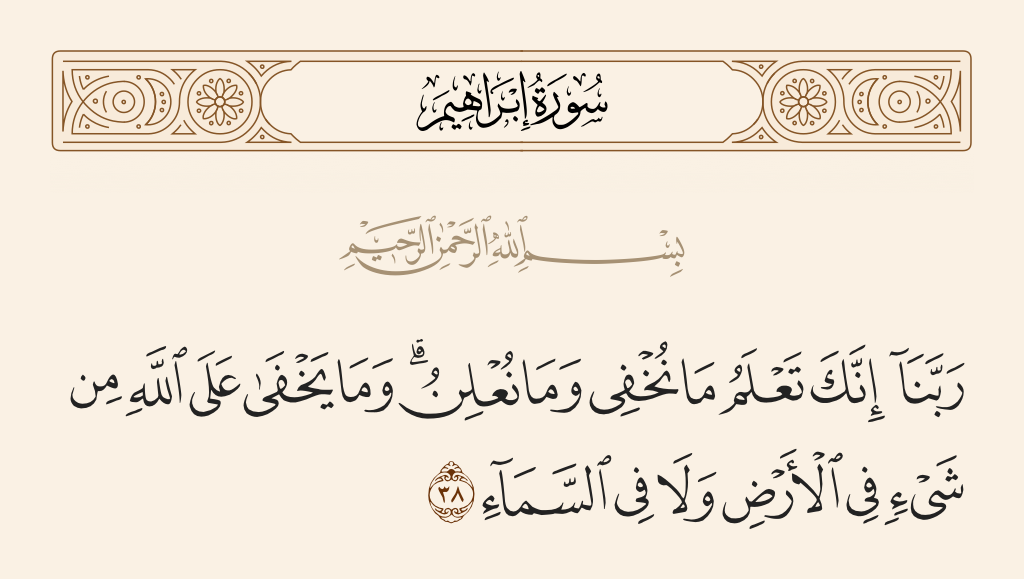 سُورَةُ إِبْرَاهِيمَ
بِسْمِ ٱللَّهِ ٱلرَّحْمَٰنِ ٱلرَّحِيمِ
رَبَّنَآ إِنَّكَ تَعْلَمُ مَا نُخْفِى وَمَا نُعْلِنُ ۗ وَمَا يَخْفَىٰ عَلَى ٱللَّهِ مِن
شَىْءٍ فِى ٱلْأَرْضِ وَلَا فِى ٱلسَّمَآءِ ٣٨